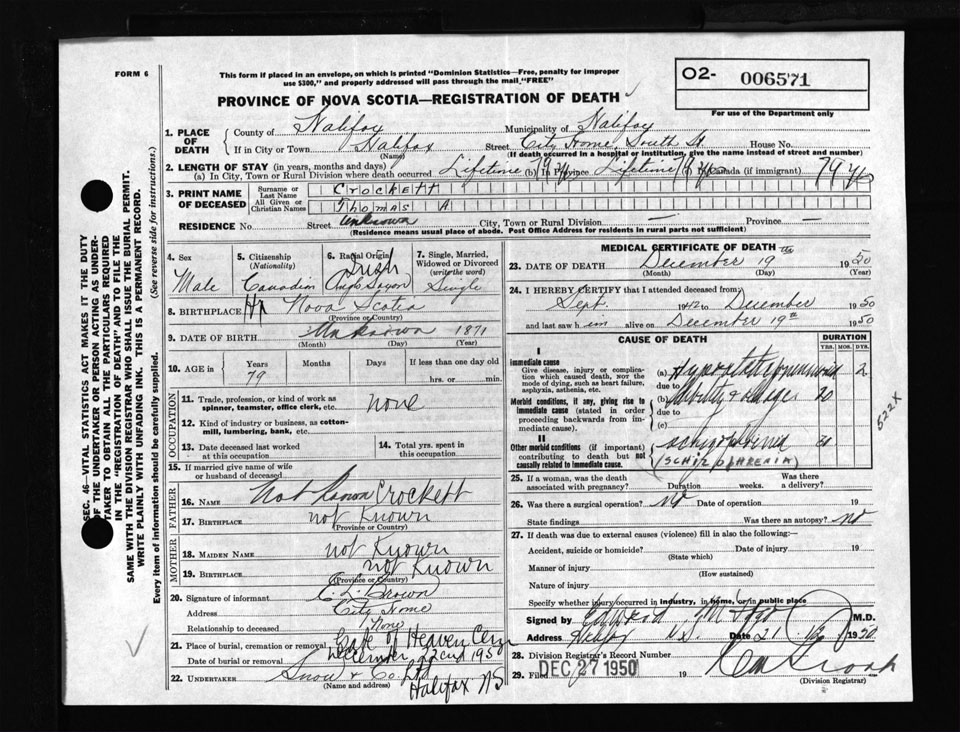 FORM 6
This form if placed in an envelope, on which is printed "Dominion Statistics—Free, penalty for improper
use $300," and properly addressed will pass through the mail "FREE"
O2- 006571
For use of the Department only
PROVINCE OF NOVA SCOTIA—REGISTRATION OF DEATH
1. PLACE OF DEATH { County of Halifax Municipality of Halifax
If in City or Town Halifax (Name) Street City Home, South St House No.
(If death occurred in a hospital or institution, give the name instead of street and number)
2. LENGTH OF STAY (in years, months and days)
(a) In City, Town or Rural Division where death occurred Lifetime (b) In Province Lifetime (c) In Canada (if immigrant) 79 yrs
3. PRINT NAME OF DECEASED { Surname or Last Name Crockett
All Given or Christian Names Thomas A
RESIDENCE No. Street Unknown City, Town or Rural Division — Province —
(Residence means usual place of abode. Post Office Address for residents in rural parts not sufficient)
4. Sex Male
5. Citizenship (Nationality) Canadian
6. Racial Origin Irish
7. Single, Married, Widowed or Divorced (write the word) Single
8. BIRTHPLACE Nova Scotia
(Province or Country)
9. DATE OF BIRTH Unknown 1871
(Month) (Day) (Year)
10. AGE in { Years 79 Months Days If less than one day old
hrs. or min.
OCCUPATION
11. Trade, profession, or kind of work as spinner, teamster, office clerk, etc. none
12. Kind of industry or business, as cotton-mill, lumbering, bank, etc.
13. Date deceased last worked at this occupation
14. Total yrs. spent in this occupation
15. If married give name of wife or husband of deceased
FATHER
16. NAME Not Known Crockett
17. BIRTHPLACE not Known
(Province or Country)
MOTHER
18. MAIDEN NAME not Known
19. BIRTHPLACE not Known
(Province or Country)
20. Signature of informant C. L. Brown
Address City Home
Relationship to deceased None
21. Place of burial, cremation or removal Gate of Heaven Cem
Date of burial or removal December 22nd 1950
22. UNDERTAKER Snow & Co. Ltd
(Name and address) Halifax NS
MEDICAL CERTIFICATE OF DEATH
23. DATE OF DEATH December 19th 1950
(Month) (Day) (Year)
24. I HEREBY CERTIFY that I attended deceased from:
Sept. 1942 to December 1950
and last saw him alive on December 19th 1950
CAUSE OF DEATH
DURATION
YRS. MOS. DYS.
I
Immediate cause
Give disease, injury or complication which caused death, not the mode of dying, such as heart failure, asphyxia, asthenia, etc.
(a) 2
due to
Morbid conditions, if any, giving rise to immediate cause (stated in order proceeding backwards from immediate cause).
(b) 20
due to
(c)
II
Other morbid conditions (if important) contributing to death but not causally related to immediate cause.
schizophrenia
(SCHIZOPHRENIA)
522X
25. If a woman, was the death associated with pregnancy? Duration weeks. Was there a delivery?
26. Was there a surgical operation? No Date of operation 19
State findings Was there an autopsy? No
27. If death was due to external causes (violence) fill in also the following:—
Accident, suicide or homicide? Date of injury 19
(State which)
Manner of injury
(How sustained)
Nature of injury
Specify whether injury occurred in industry, in home, or in public place
Signed by Edward M.D.
Address Halifax N.S. Date 21 1950
28. Division Registrar's Record Number
29. Filed DEC 27 1950 19
(Division Registrar)
SEC. 46—VITAL STATISTICS ACT MAKES IT THE DUTY
OF THE UNDERTAKER OR PERSON ACTING AS UNDER-
TAKER TO OBTAIN ALL THE PARTICULARS REQUIRED
IN THE "REGISTRATION OF DEATH" AND TO FILE THE
SAME WITH THE DIVISION REGISTRAR WHO SHALL ISSUE THE BURIAL PERMIT.
WRITE PLAINLY WITH UNFADING INK. THIS IS A PERMANENT RECORD.
Every item of information should be carefully supplied. (See reverse side for instructions.)